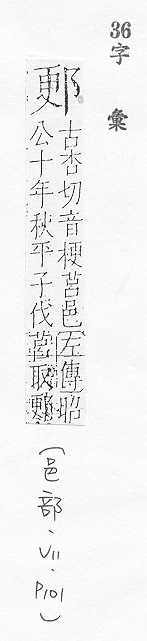 36字彙
郠
古杏切音梗莒邑左傳昭
公十年秋平子伐莒取郠
(邑部、VII、P101)